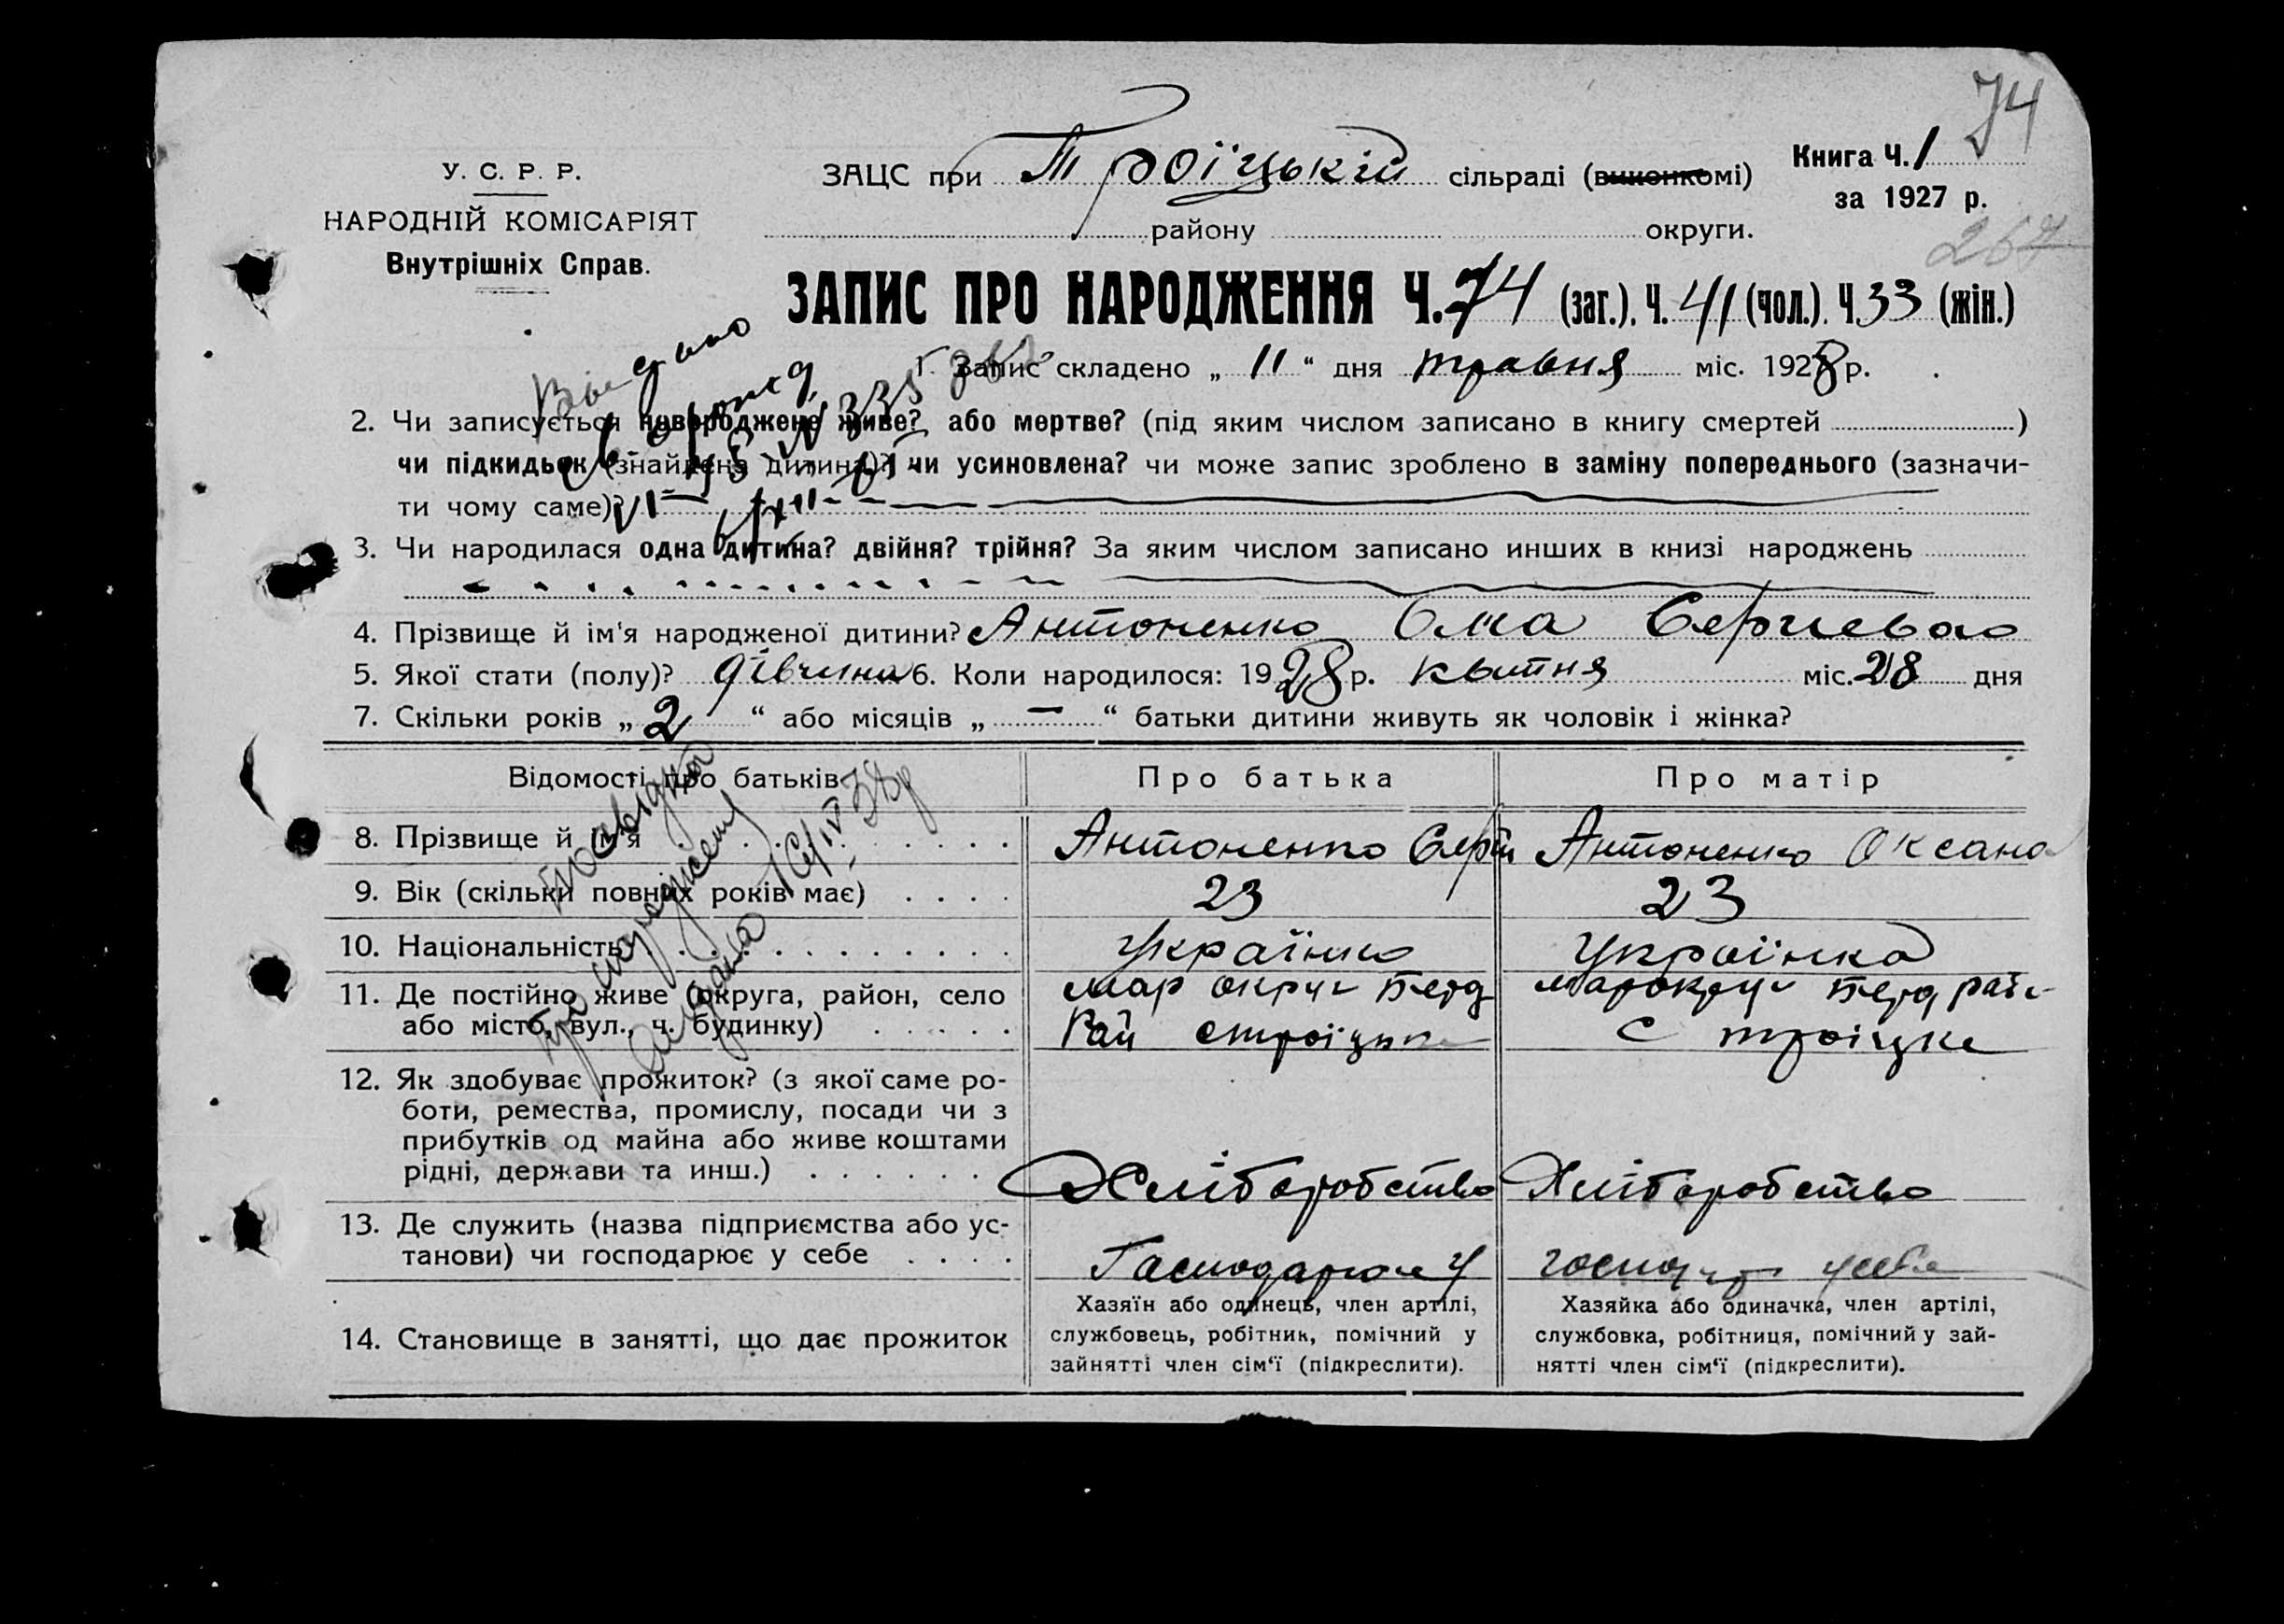 74
У. С. Р. Р.
НАРОДНІЙ КОМІСАРІЯТ
Внутрішніх Справ.
ЗАЦС при Троїцькій сільраді (виконкомі)
району округи.
Книга Ч. 1
за 1927 р.
267
ЗАПИС ПРО НАРОДЖЕННЯ Ч. 74 (заг.). Ч. 41 (чол.). Ч. 33 (жін.)
Видано
1. Запис складено „ 11 “ дня травня міс. 1928 р.
2. Чи записується новороджене живе? або мертве? (під яким числом записано в книгу смертей )
чи підкидьок (знайдена дитина)? чи усиновлена? чи може запис зроблено в заміну попереднього (зазначи-
ти чому саме)?
3. Чи народилася одна дитина? двійня? трійня? За яким числом записано инших в книзі народжень
4. Прізвище й ім'я народженої дитини? Антоненко Ола Сергиевна
5. Якої стати (полу)? дівчина 6. Коли народилося: 1928 р. квітня міс. 28 дня
7. Скільки років „ 2 “ або місяців „ — “ батьки дитини живуть як чоловік і жінка?
Відомості про батьків Про батька Про матір
8. Прізвище й ім'я Антоненко Сергій Антоненко Оксана
9. Вік (скільки повних років має) 23 23
10. Національність Українец Українка
11. Де постійно живе (округа, район, село Мар округ Берд Мар округ Берд рай
або місто, вул., ч. будинку) Рай с Троїцьке с Троіцке
12. Як здобуває прожиток? (з якої саме ро-
боти, ремества, промислу, посади чи з
прибутків од майна або живе коштами
рідні, держави та инш.) Хліборобство Хліборобство
13. Де служить (назва підприємства або ус-
танови) чи господарює у себе Господарює у господар у себе
14. Становище в занятті, що дає прожиток
Хазяїн або одинець, член артілі,
службовець, робітник, помічний у
зайнятті член сім'ї (підкреслити).
Хазяйка або одиначка, член артілі,
службовка, робітниця, помічний у зай-
нятті член сім'ї (підкреслити).